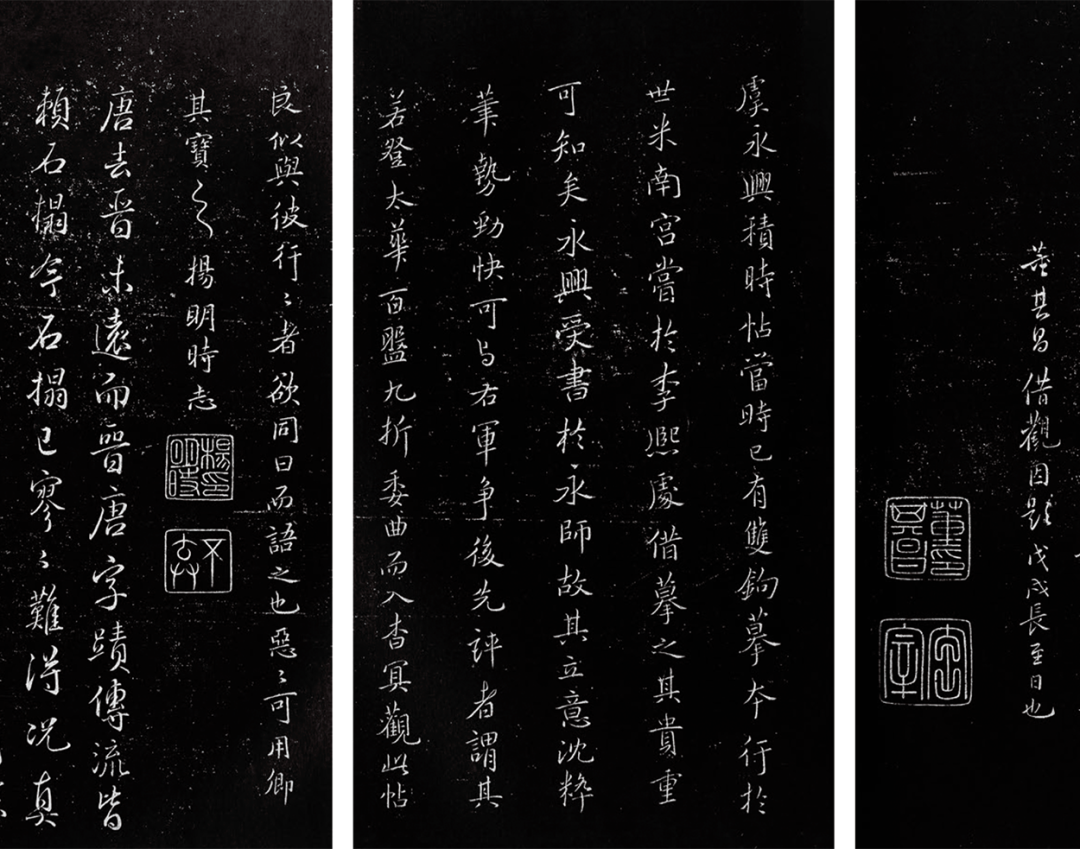 董其昌借觀因題戊戌長至日也
虞永興積時帖當時已有雙鉤摹本行於
世米南宮嘗於李熙處借摹之其貴重
可知矣永興受書於永師故其立意沈粹
筆勢勁快可与右軍争後先評者謂其
若登太華百盤九折委曲而入杳冥觀此帖
良似與彼行〻者欲同日而語之也惡〻可用卿
其寶之〻楊明時志
楊明時印
不棄
唐去晉未遠而晉唐字蹟傳流皆
賴石榻今石搨已寥〻難得况真